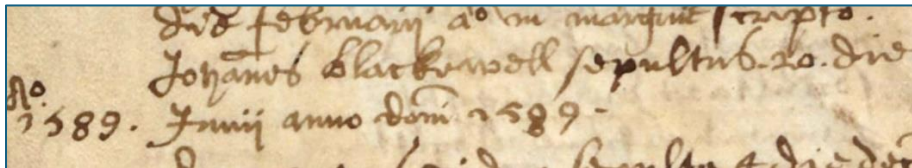 die februarij a° in margine scripto.
Johānes blackewell sepultus. 20. die
A°
1589. Junij anno domī 1589.